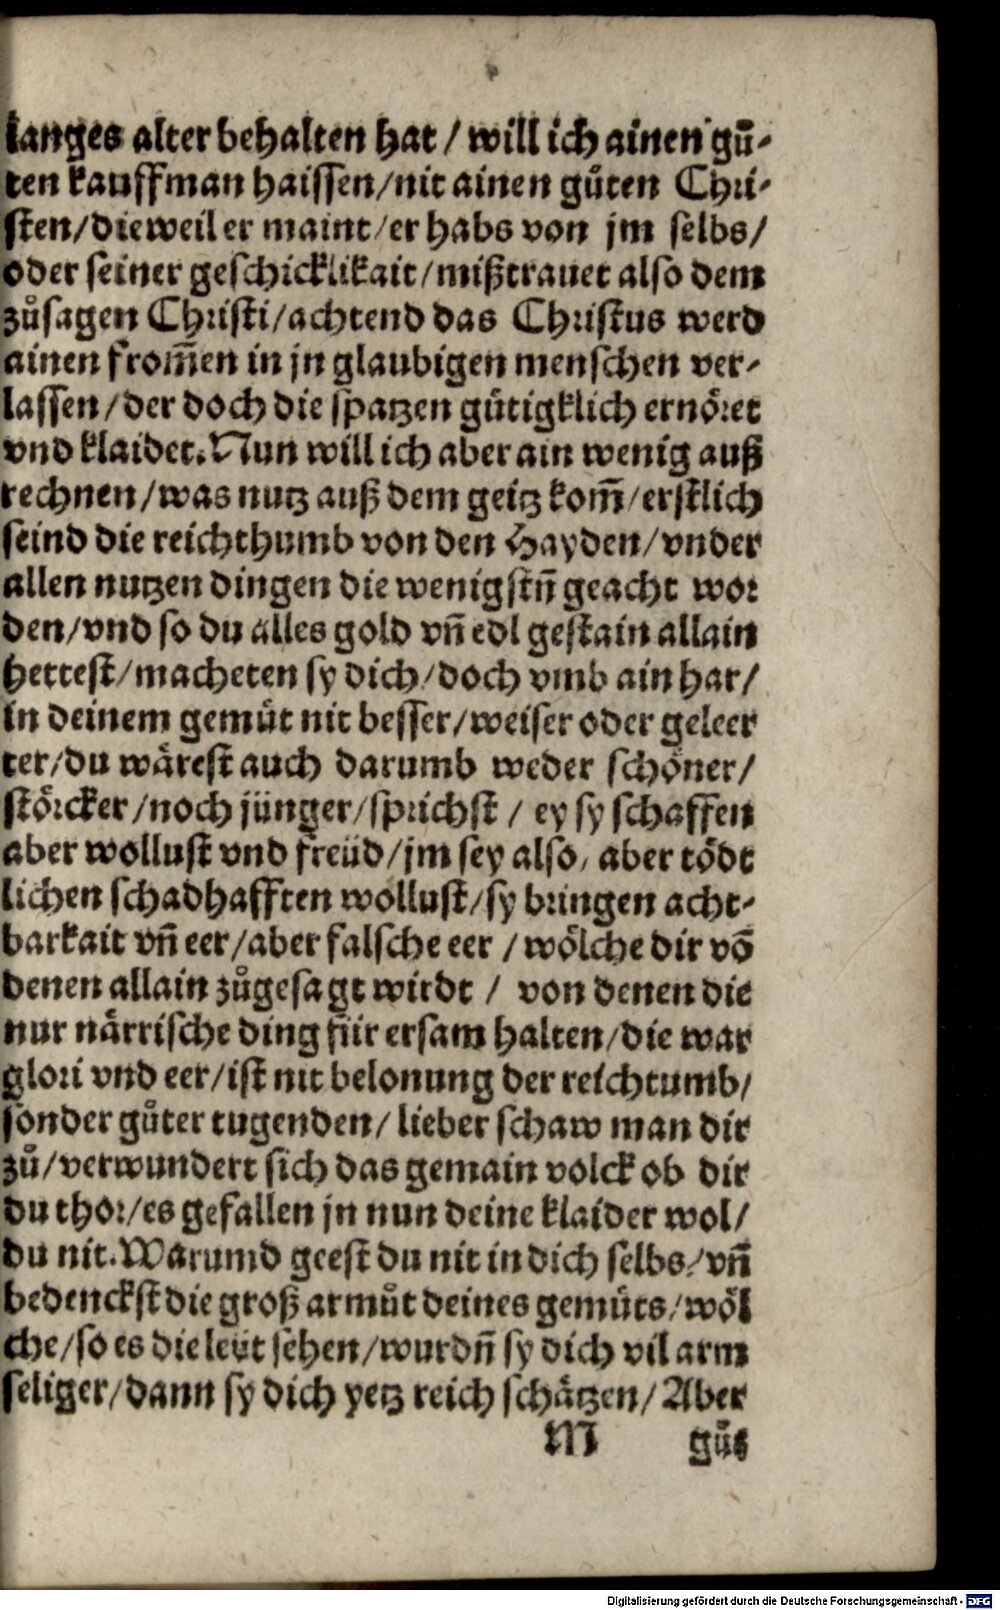 langes alter behalten hat / will ich ainen gů-
ten kauffman haissen/nit ainen gůten Chri-
sten/dieweil er maint/er habs von jm selbs/
oder seiner geschicklikait/mißtrauet also dem
zůsagen Christi/achtend das Christus werd
ainen from̃en in jn glaubigen menschen ver-
lassen/der doch die spatzen gůtigklich ernöret
vnd klaidet. Nun will ich aber ain wenig auß
rechnen/was nutz auß dem geitz kom̃/erstlich
seind die reichthumb von den Hayden/vnder
allen nutzen dingen die wenigstñ geacht wor
den/vnd so du alles gold vñ edl gestain allain
hettest/macheten sy dich/doch vmb ain har/
in deinem gemůt nit besser/weiser oder geleer
ter/du wärest auch darumb weder schöner/
störcker/noch jünger/sprichst / ey sy schaffen
aber wollust vnd freüd/jm sey also, aber tödt
lichen schadhafften wollust/sy bringen acht-
barkait vñ eer/aber falsche eer / wölche dir võ
denen allain zůgesagt wirdt / von denen die
nur närrische ding für ersam halten/die war
glori vnd eer/ist nit belonung der reichtumb/
sonder gůter tugenden/ lieber schaw man dir
zů/verwundert sich das gemain volck ob dir
du thor/es gefallen jn nun deine klaider wol/
du nit. Warumd geest du nit in dich selbs/vñ
bedenckst die groß armůt deines gemůts/wöl
che/so es die leüt sehen/wurdñ sy dich vil arm
seliger/dann sy dich yetz reich schätzen/ Aber
M gůs
Digitalisierung gefördert durch die Deutsche Forschungsgemeinschaft - DFG